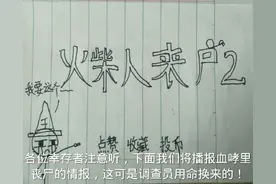 火柴人来户2
点赞 收藏 投币
各位幸存者注意听，下面我们将播报血哮里
丧尸的情报，这可是调查员用命换来的！